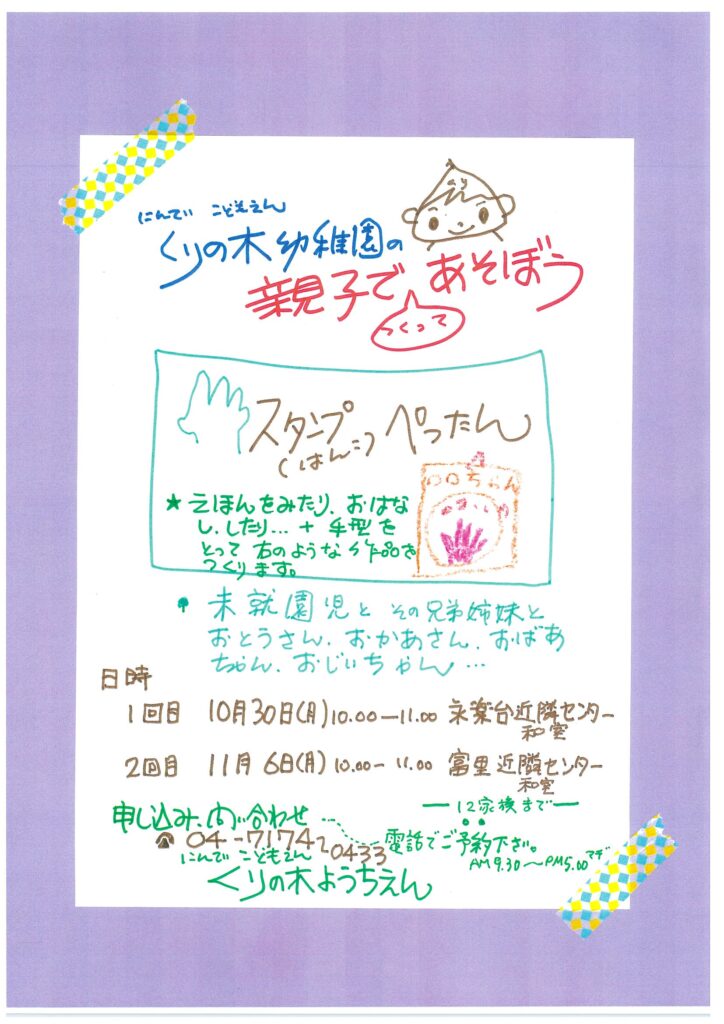 にんてい こどもえん
くりの木幼稚園の
親子であそぼう
つくって
スタンプぺったん
(はんこ)
★えほんをみたり、おはな
し、したり…+手型を
とって右のような作品を
つくります。
〇〇ちゃん
未就園児とその兄弟姉妹と
おとうさん、おかあさん、おばあ
ちゃん、おじいちゃん…
日時
1回目 10月30日(月)10.00-11.00 永楽台近隣センター
和室
2回目 11月6日(月)10.00-11.00 富里近隣センター
和室
12家族まで
申し込み、問い合わせ…
電話でご予約下さい。
☎04-7174-0433
AM9.30~PM5.00マデ
にんてい こどもえん
くりの木ようちえん